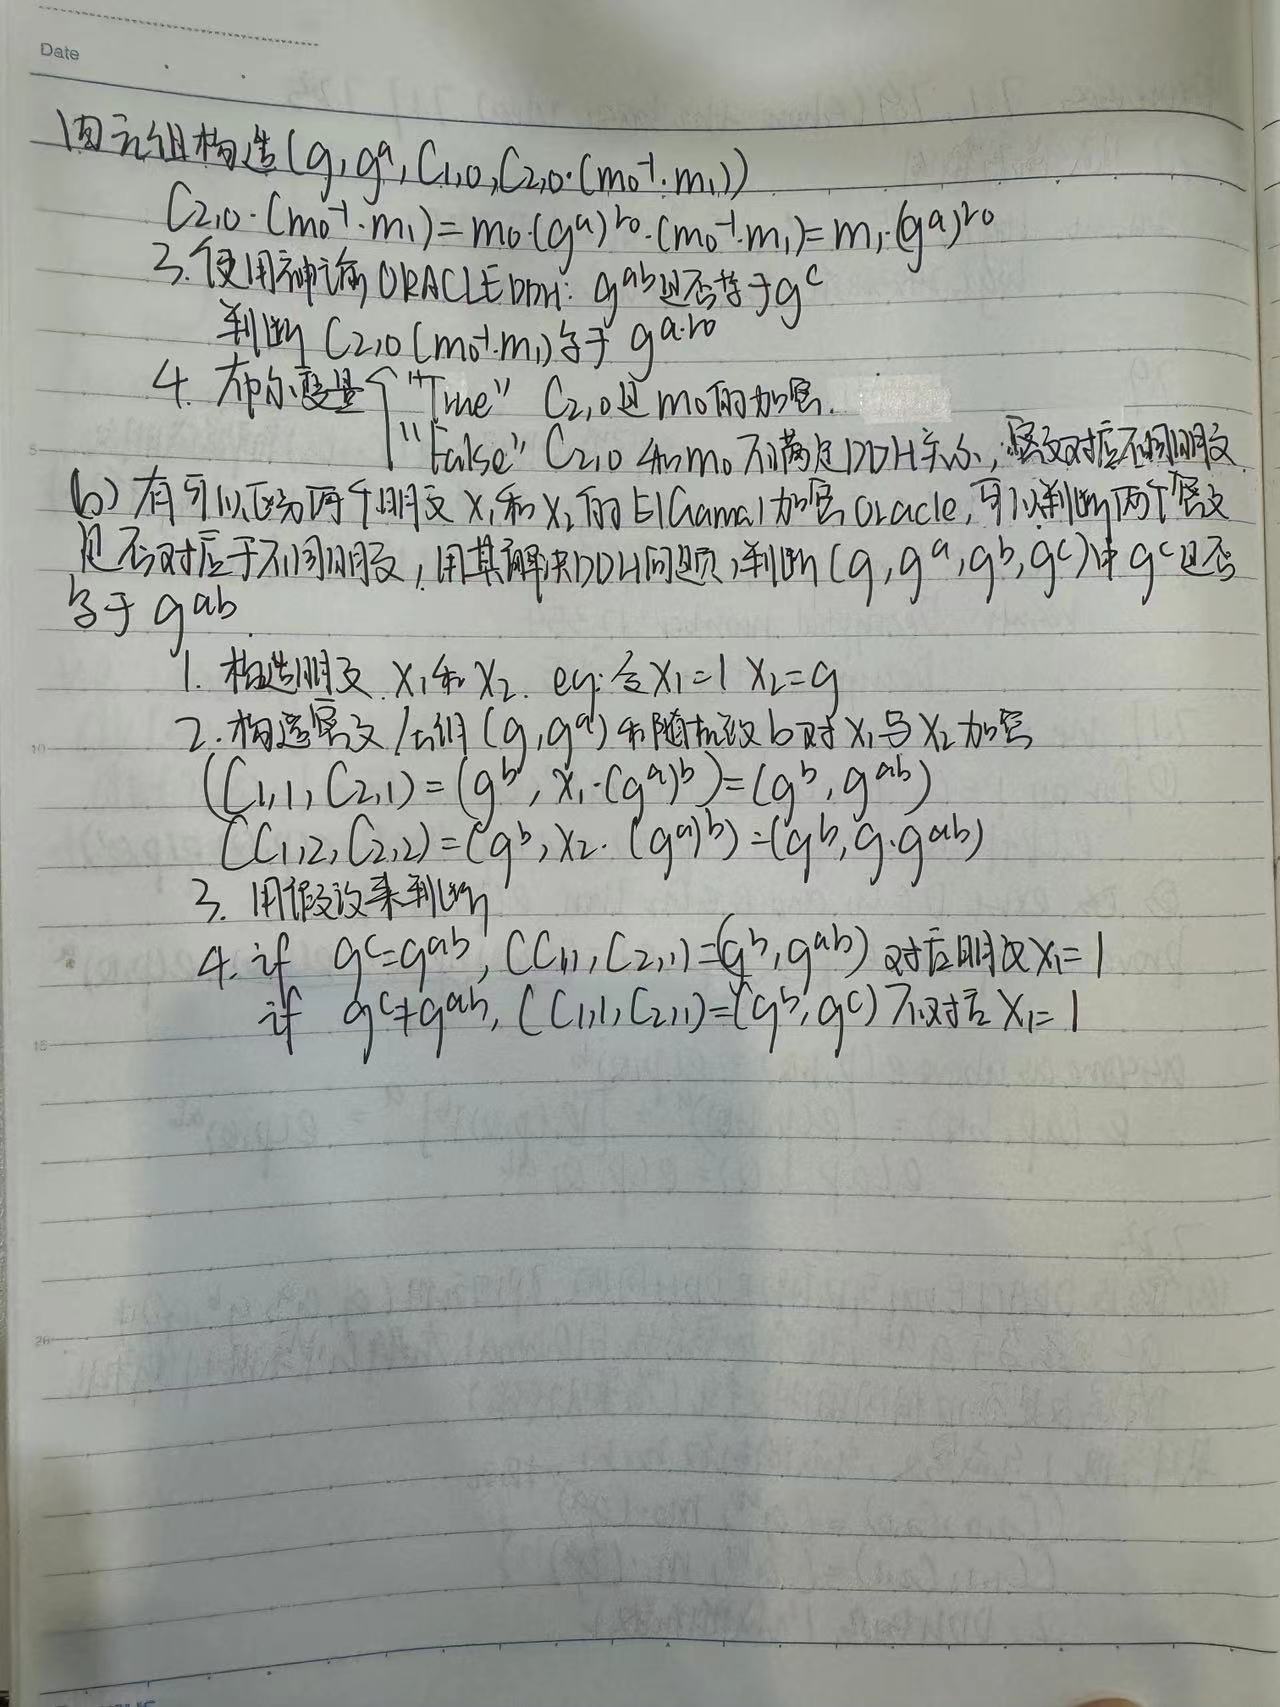 Date
四元组构造(g, g^a, C1,0, C2,0·(m0^-1·m1))
C2,0·(m0^-1·m1)=m0·(g^a)^r0·(m0^-1·m1)=m1·(g^a)^r0
3. 使用神谕ORACLEDDH: g^ab是否等于g^c
判断 C2,0(m0^-1·m1)等于 g^a·r0
4. 布尔变量{ "True" C2,0是m0的加密.
"False" C2,0和m0不满足DDH关系, 密文对应不同明文.
(b) 有可以区分两个明文x1和x2的ElGamal加密Oracle, 可以判断两个密文
是否对应于不同明文, 用其解决DDH问题, 判断(g, g^a, g^b, g^c)中g^c是否
等于 g^ab
1. 构造明文 x1和x2. eg: 令x1=1 x2=g
2. 构造密文 公钥(g, g^a)和随机数b对x1与x2加密
(C1,1, C2,1)=(g^b, x1·(g^a)^b)=(g^b, g^ab)
(C1,2, C2,2)=(g^b, x2·(g^a)^b)=(g^b, g·g^ab)
3. 用假设来判断
4. if g^c=g^ab, (C1,1, C2,1)=(g^b, g^ab) 对应明文x1=1
if g^c≠g^ab, (C1,1, C2,1)=(g^b, g^c) 不对应x1=1
5
10
15
20